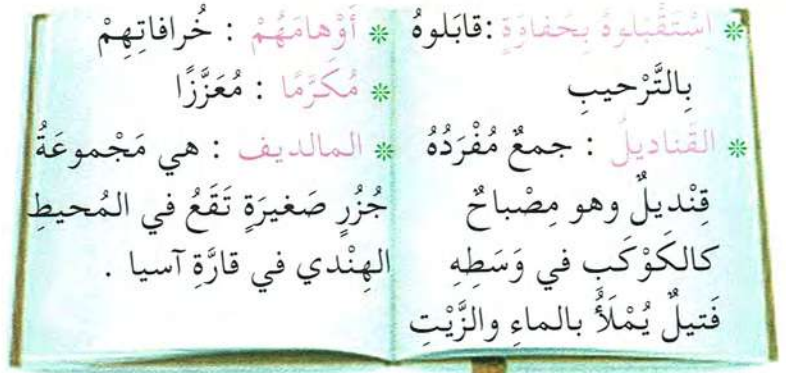 * اسْتَقْبَلوهُ بِحَفاوَةٍ : قابَلوهُ
بِالتَّرْحيبِ
* القَناديلُ : جمعٌ مُفْرَدُهُ
قِنْديلٌ وهو مِصْباحٌ
كالكَوْكَبِ في وَسَطِهِ
فَتيلٌ يُمْلَأُ بالماءِ والزَّيْتِ
* أَوْهامَهُمْ : خُرافاتِهِمْ
* مُكَرَّمًا : مُعَزَّزًا
* المالديف : هي مَجْموعَةُ
جُزُرٍ صَغيرَةٍ تَقَعُ في المُحيطِ
الهِنْدي في قارَّةِ آسيا .